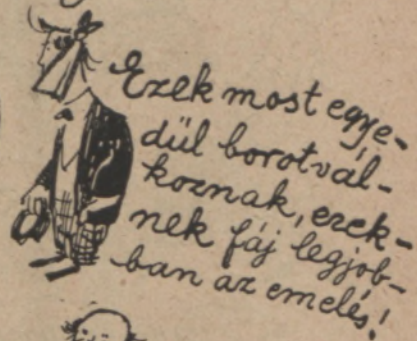 Ezek most egye-
dül borotvál-
koznak, ezek-
nek fáj legjob-
ban az emelés!